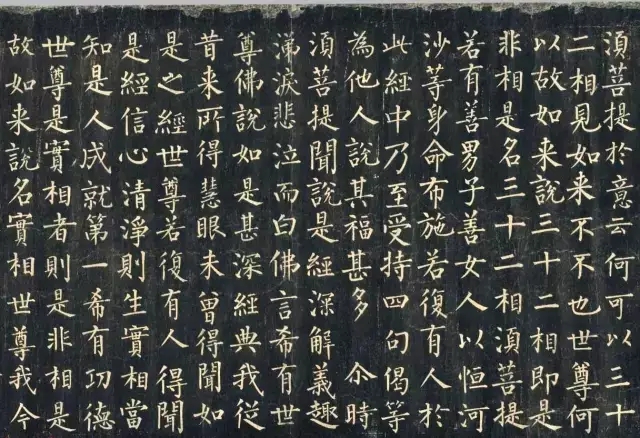 須菩提於意云何可以三十
二相見如来不不也世尊何
以故如来說三十二相即是
非相是名三十二相須菩提
若有善男子善女人以恒河
沙等身命布施若復有人於
此經中乃至受持四句偈等
為他人說其福甚多 尒時
須菩提聞說是經深解義趣
涕淚悲泣而白佛言希有世
尊佛說如是甚深經典我從
昔来所得慧眼未曾得聞如
是之經世尊若復有人得聞
是經信心清淨則生實相當
知是人成就第一希有功德
世尊是實相者則是非相是
故如来說名實相世尊我今